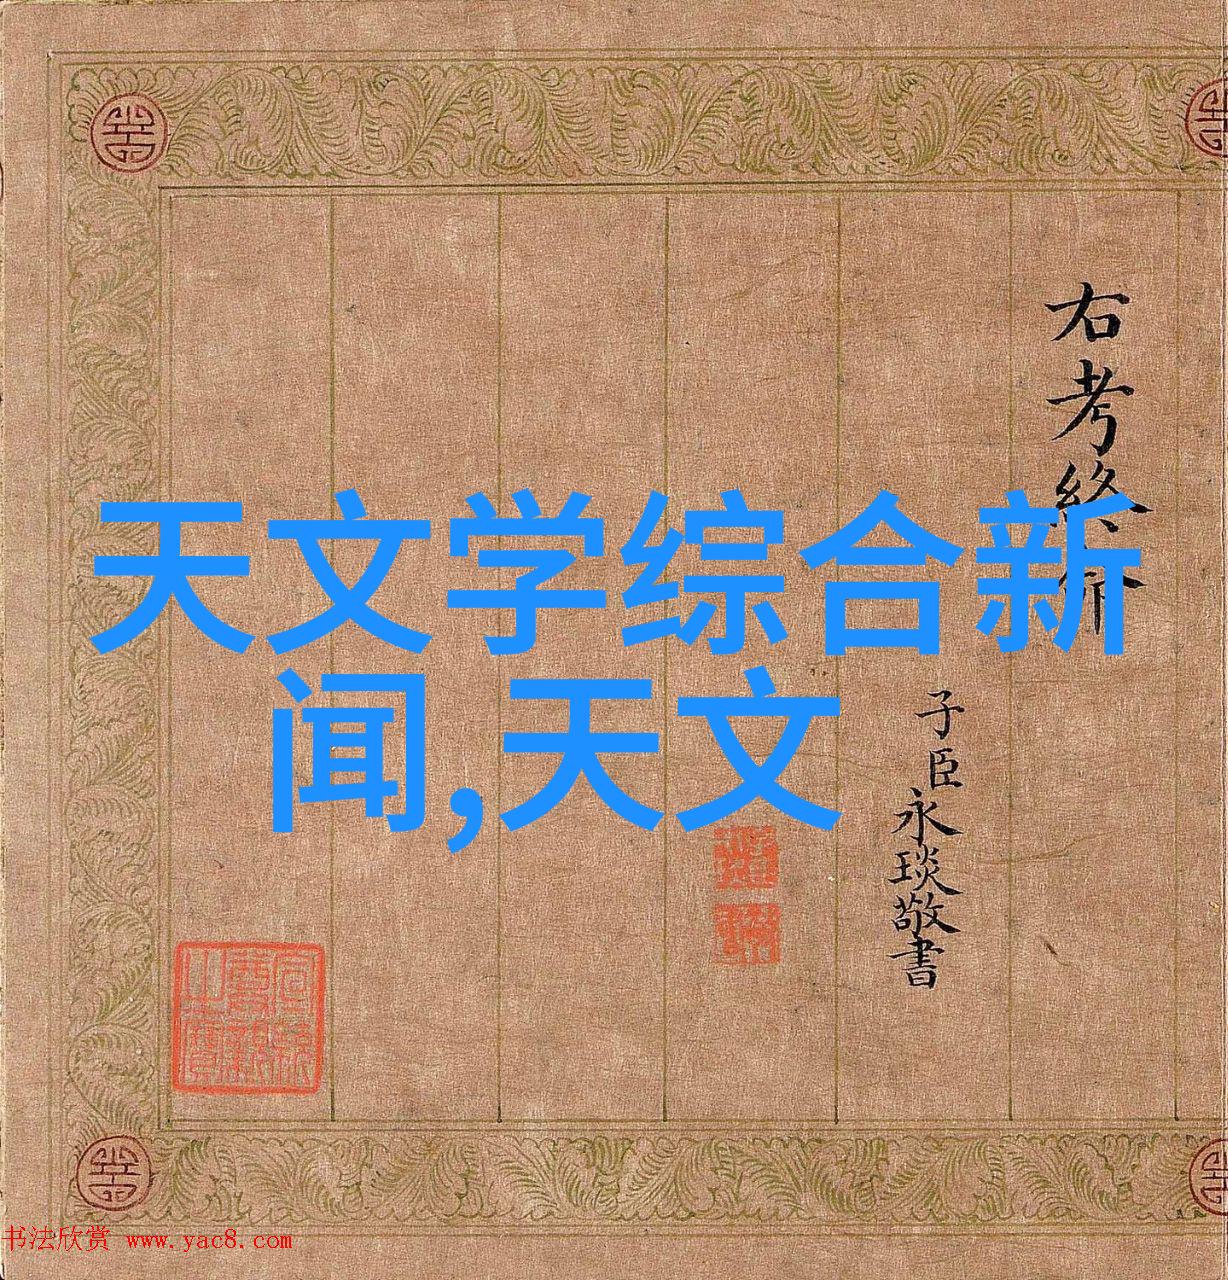 天文学综合新
闻,天文
右考終命
子臣永琰敬書
书法欣赏 www.yac8.com